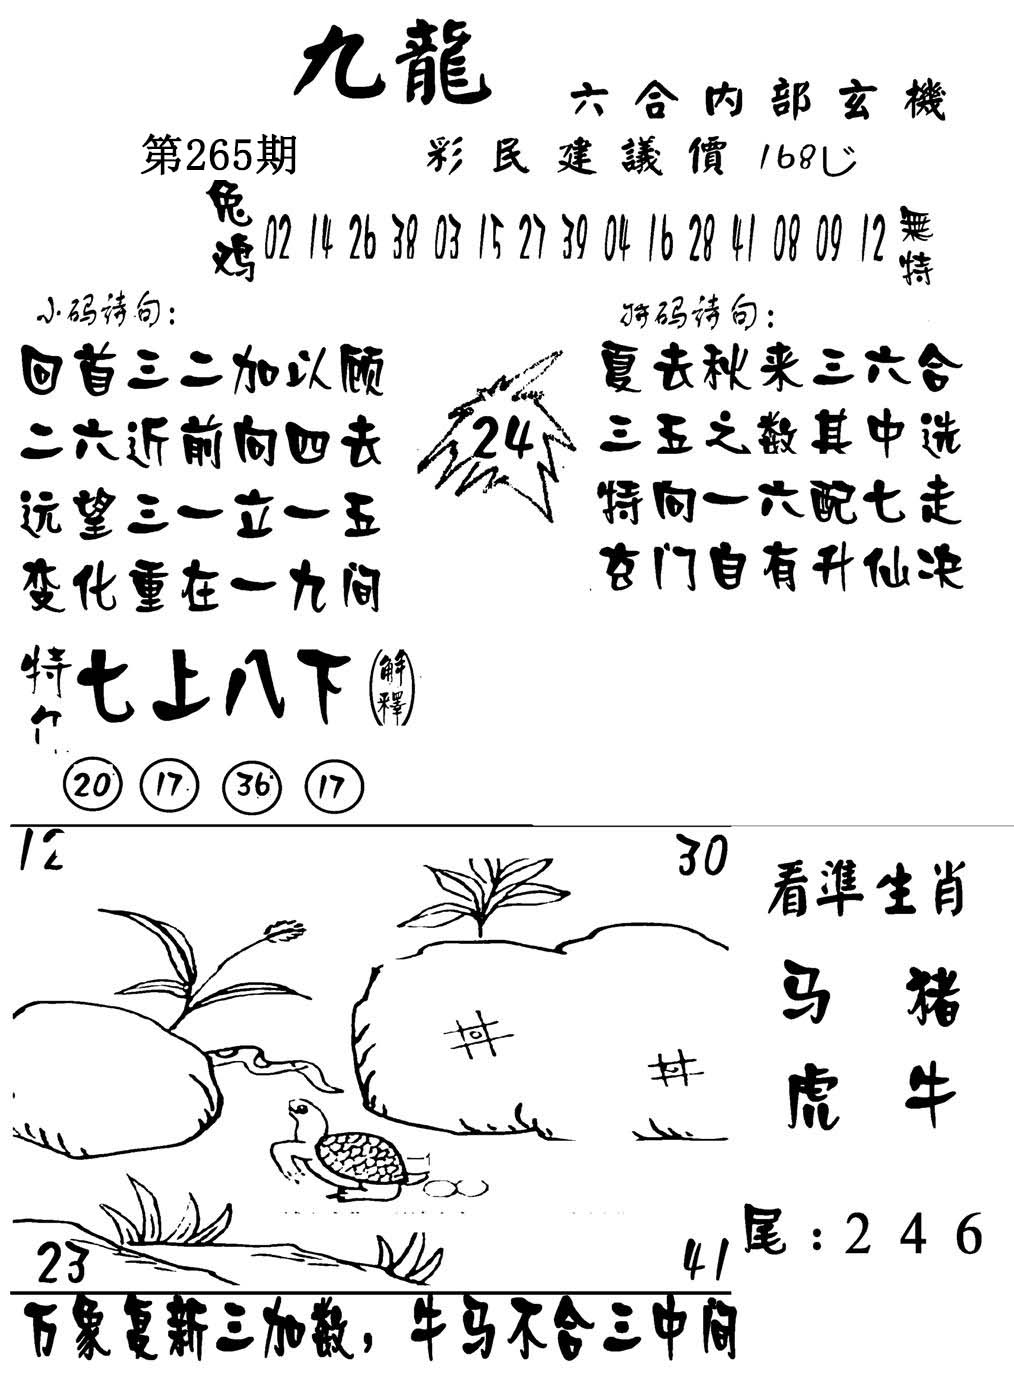 九龍
六合内部玄機
第265期
彩民建議價 168
兔鸡 02 14 26 38 03 15 27 39 04 16 28 41 08 09 12 無特
小码诗句：
特码诗句：
回首三二加以顾
二六近前向四去
远望三一立一五
变化重在一九间
24
夏去秋来三六合
三五之数其中选
特向一六配七走
玄门自有升仙决
特
七上八下
解釋
20 17 36 17
12
30
看準生肖
马 猪
虎 牛
尾：2 4 6
23
41
万象复新三加数，牛马不合三中间